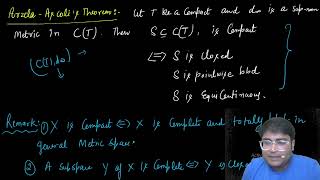 Arzela - Ascoli's Theorem:- Let T be a Compact and d∞ is a sup-norm
Metric in C(T). Then S ⊆ C(T), is Compact
(C(T), d∞)
⇔ S is closed
S is pointwise bdd
S is EquiContinuous.
Remark:- ① X is Compact ⇔ X is Complete and totally bdd in
general Metric Space.
② A Subspace Y of X is Complete ⇔ Y is Closed